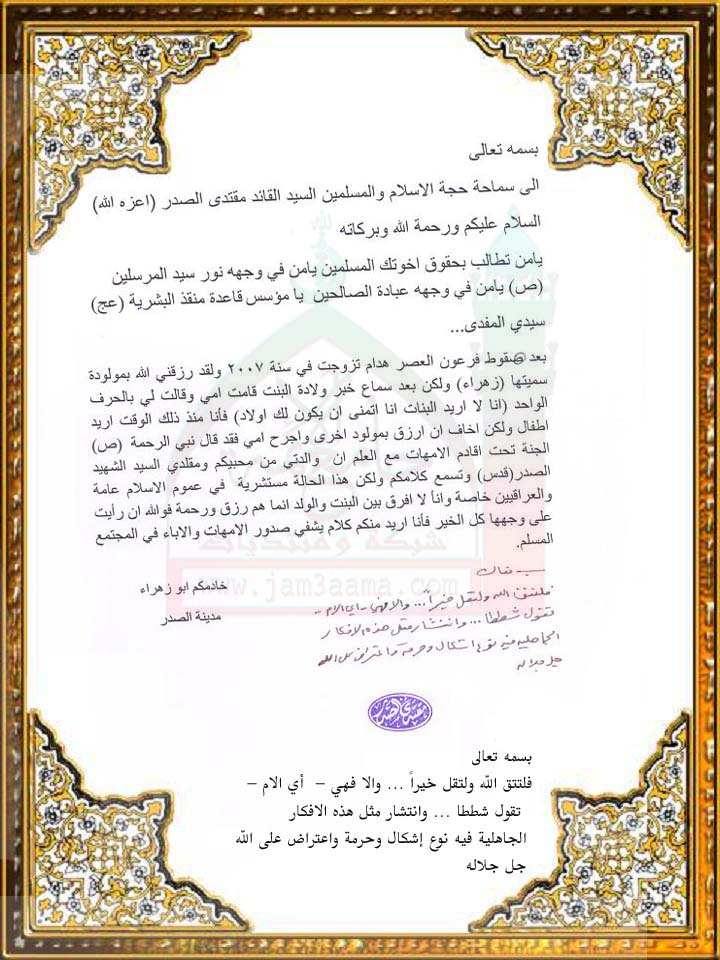 بسمه تعالى
الى سماحة حجة الاسلام والمسلمين السيد القائد مقتدى الصدر (اعزه الله)
السلام عليكم ورحمة الله وبركاته
يامن تطالب بحقوق اخوتك المسلمين يامن في وجهه نور سيد المرسلين
(ص) يامن في وجهه عبادة الصالحين يا مؤسس قاعدة منقذ البشرية (عج)
سيدي المفدى...
بعد سقوط فرعون العصر هدام تزوجت في سنة ٢٠٠٧ ولقد رزقني الله بمولودة
سميتها (زهراء) ولكن بعد سماع خبر ولادة البنت قامت امي وقالت لي بالحرف
الواحد (انا لا اريد البنات انا اتمنى ان يكون لك اولاد) فأنا منذ ذلك الوقت اريد
اطفال ولكن اخاف ان ارزق بمولود اخرى واجرح امي فقد قال نبي الرحمة (ص)
الجنة تحت اقادم الامهات مع العلم ان والدتي من محبيكم ومقلدي السيد الشهيد
الصدر(قدس) وتسمع كلامكم ولكن هذا الحالة مستشرية في عموم الاسلام عامة
والعراقيين خاصة وانا لا افرق بين البنت والولد انما هم رزق ورحمة فوالله ان رأيت
على وجهها كل الخير فأنا اريد منكم كلام يشفي صدور الامهات والاباء في المجتمع
المسلم.
خادمكم ابو زهراء
مدينة الصدر
شبكة ومنتديات
www.jam3aama.com
بسمه تعالى
فلتتق الله ولتقل خيراً ... والا فهي - اي الام -
تقول شططا ... وانتشار مثل هذه الافكار
الجاهلية فيه نوع اشكال وحرمة واعتراض على الله
جل جلاله
مقتدى الصدر
بسمه تعالى
فلتتق الله ولتقل خيراً ... والا فهي – أي الام –
تقول شططا ... وانتشار مثل هذه الافكار
الجاهلية فيه نوع إشكال وحرمة واعتراض على الله
جل جلاله